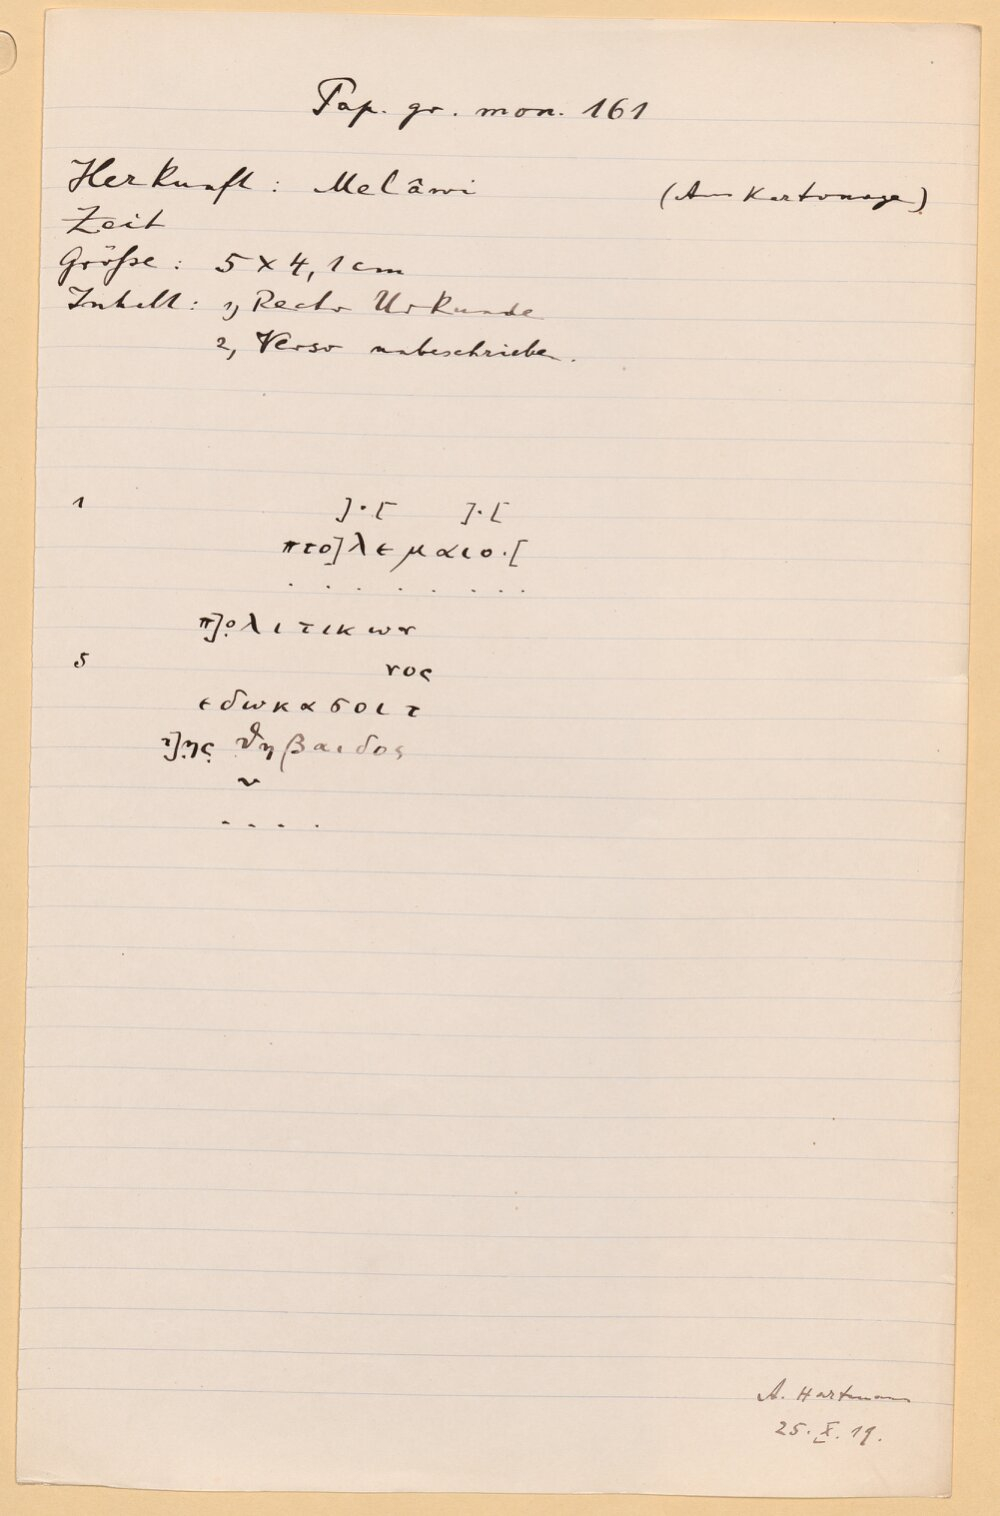 Pap. gr. mon. 161
Herkunft : Melâwi (Aus Kartonage)
Zeit
Größe : 5 × 4,1 cm
Inhalt : 1, Recto Urkunde
2, Verso unbeschrieben.
1 ].[ ].[
πτο]λεμαιο.[
. . . . . . . .
π]ο̣λιτικων
5 νος
εδωκασοιτ
τ]η̣ς̣ θηβαιδος
ν
. . . .
A. Hartmann
25. X. 19.